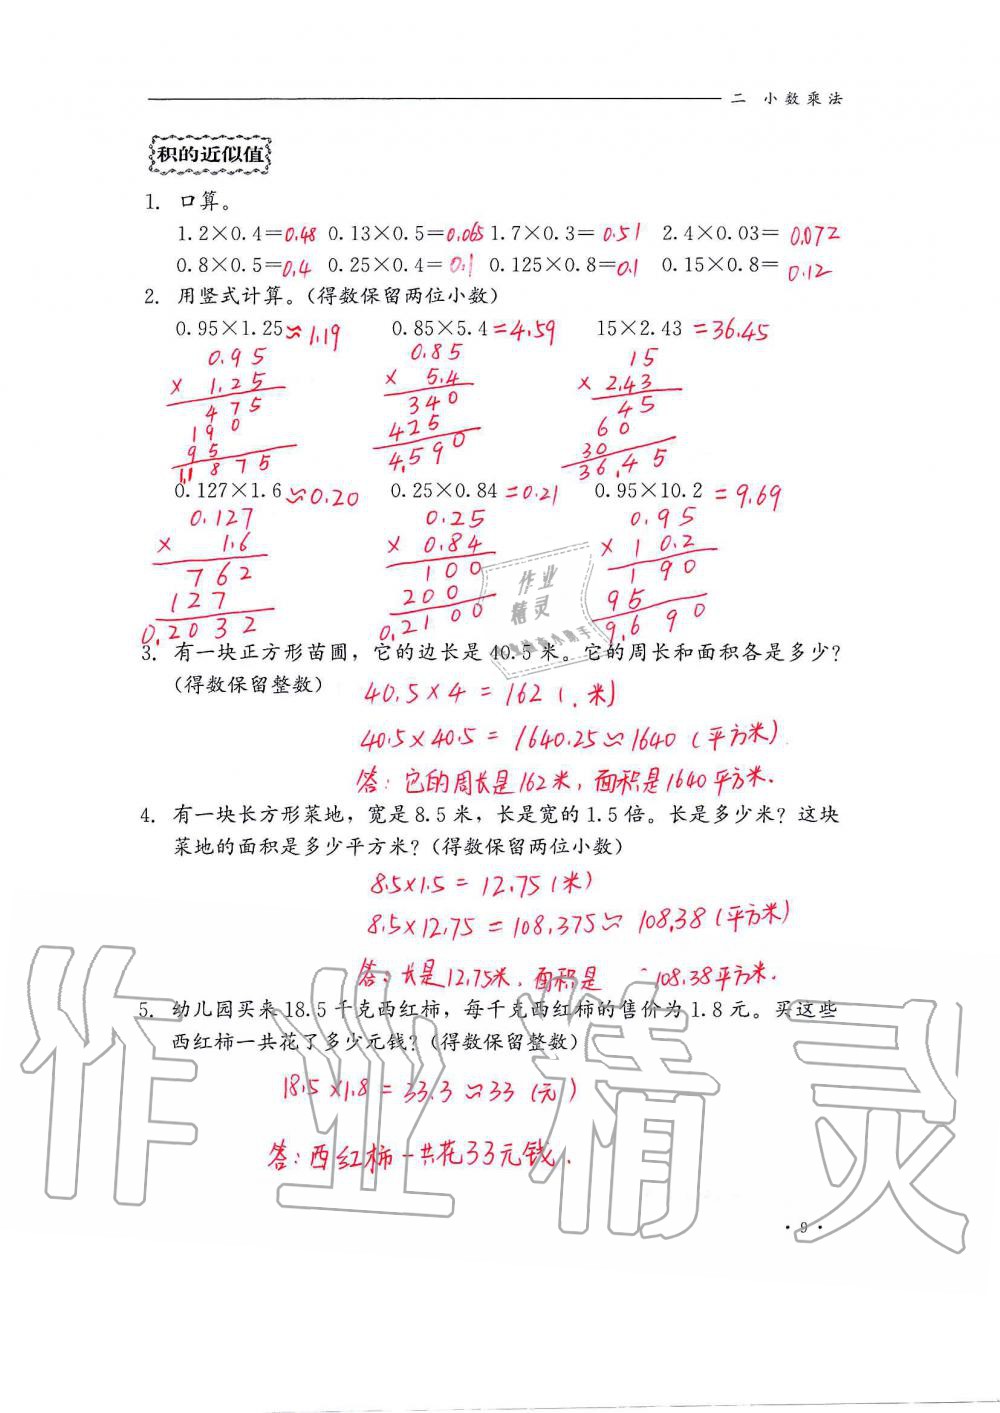 二 小数乘法
积的近似值
1. 口算。
1.2×0.4=0.48 0.13×0.5=0.065 1.7×0.3= 0.51 2.4×0.03= 0.072
0.8×0.5=0.4 0.25×0.4= 0.1 0.125×0.8=0.1 0.15×0.8= 0.12
2. 用竖式计算。(得数保留两位小数)
0.95×1.25≈1.19 0.85×5.4=4.59 15×2.43 =36.45
0.95 0.85 15
× 1.25 × 5.4 × 2.43
475 340 45
190 425 60
95 4.590 30
1.1875 36.45
0.127×1.6≈0.20 0.25×0.84=0.21 0.95×10.2 = 9.69
0.127 0.25 0.95
× 1.6 × 0.84 × 10.2
762 100 190
127 200 95
0.2032 0.2100 9.690
3. 有一块正方形苗圃，它的边长是 40.5 米。它的周长和面积各是多少?
(得数保留整数)
40.5×4 = 162 (米)
40.5×40.5 = 1640.25≈1640 (平方米)
答: 它的周长是162米, 面积是1640平方米.
4. 有一块长方形菜地，宽是 8.5 米，长是宽的 1.5 倍。长是多少米? 这块
菜地的面积是多少平方米?(得数保留两位小数)
8.5×1.5 = 12.75 (米)
8.5×12.75 = 108.375≈ 108.38 (平方米)
答: 长是12.75米, 面积是 108.38平方米.
5. 幼儿园买来 18.5 千克西红柿，每千克西红柿的售价为 1.8 元。买这些
西红柿一共花了多少元钱?(得数保留整数)
18.5×1.8 = 33.3 ≈33 (元)
答: 西红柿一共花33元钱.
· 9 ·
作业精灵
作业
精灵